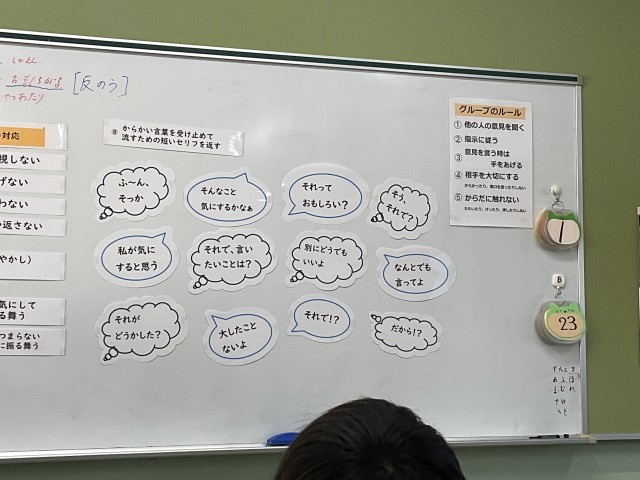 [反のう]
やつあたり
対応
視しない
げない
わない
い返さない
やかし)
気にして
る舞う
つまらない
に振る舞う
⑧ からかい言葉を受け止めて
流すための短いセリフを返す
ふ〜ん、
そっか
そんなこと
気にするかなぁ
それって
おもしろい?
そう、
それで?
私が気に
すると思う
それで、言い
たいことは?
別にどうでも
いいよ
なんとでも
言ってよ
それが
どうかした?
大したこと
ないよ
それで!?
だから!?
グループのルール
① 他の人の意見を聞く
② 指示に従う
③ 意見を言う時は
手をあげる
④ 相手を大切にする
からかったり、悪口を言ったりしない
⑤ からだに触れない
たたいたり、けったり、押したりしない
1
B
23